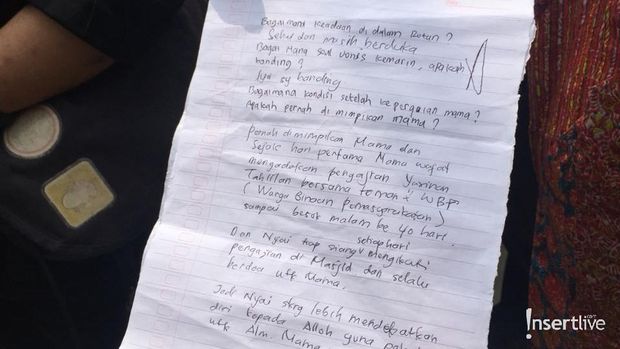 Bagaimana keadaan di dalam Rutan?
Sehat dan masih berduka
Bagai mana soal vonis kemarin, apakah
banding?
Iya sy banding
Bagaimana kondisi setelah kepergian mama?
Apakah pernah di mimpikan mama?
Pernah dimimpikan Mama dan
Sejak hari pertama Mama wafat
mengadakan pengajian Yasinan
Tahlilan bersama teman" WBP
(Warga Binaan Pemasyarakatan)
sampai besok malam ke 40 hari.
Dan Nyai tiap siang setiap hari mengikuti
pengajian di Masjid dan selalu
berdoa utk Mama.
Jadi Nyai skrg lebih mendekatkan
diri kepada Allah guna
utk Alm. Mama
Insertlive.com